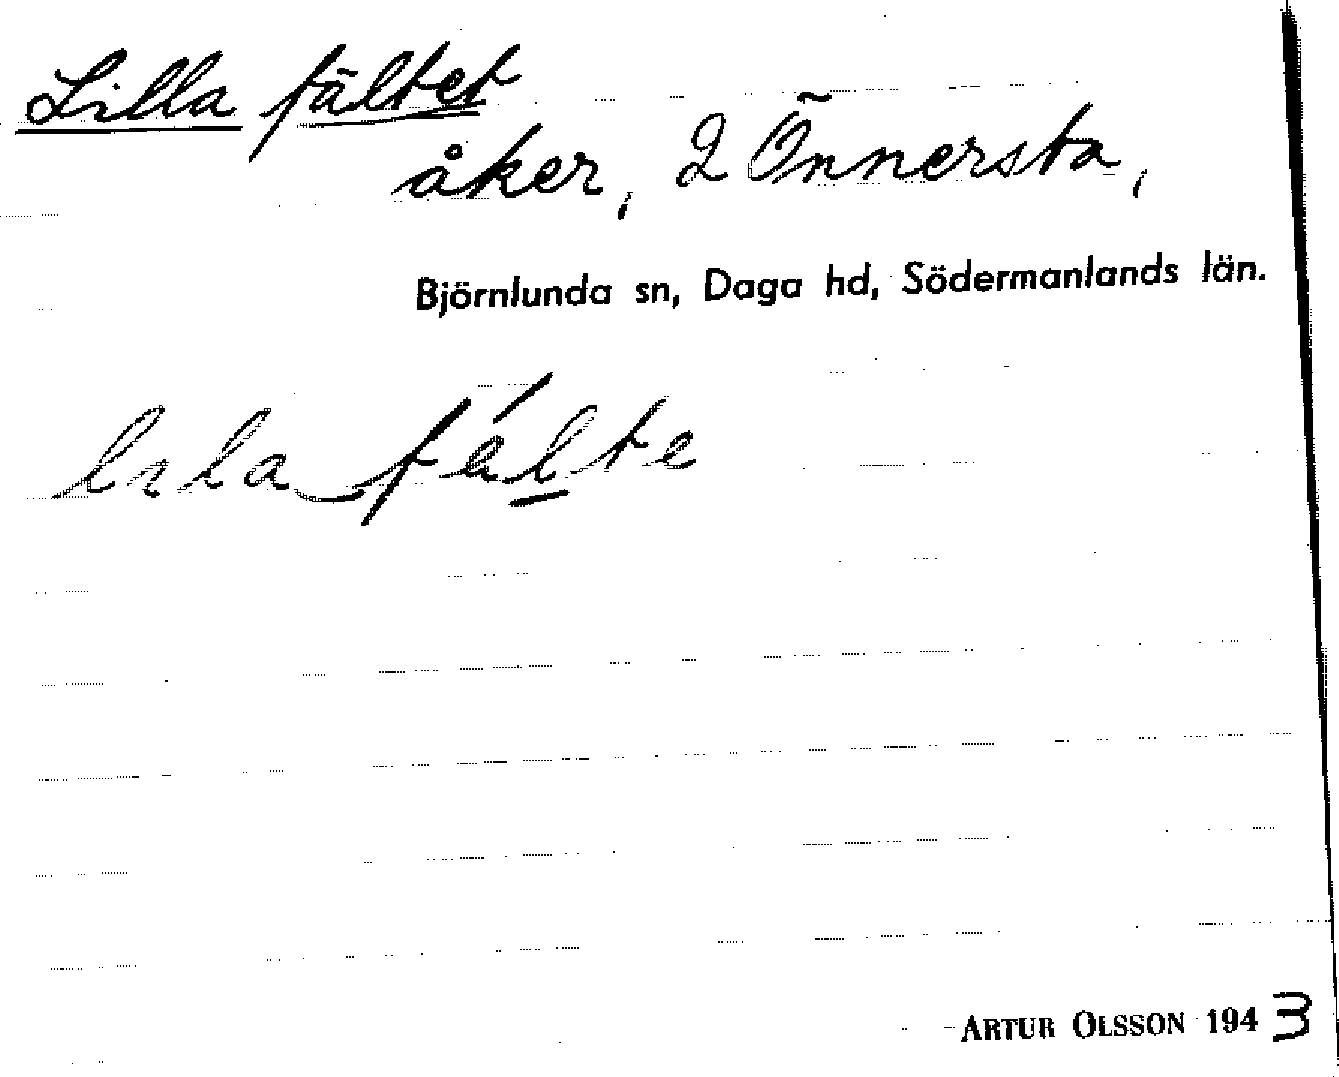 Lilla fältet
åker, 2 Önnersta,
Björnlunda sn, Daga hd, Södermanlands län.
fälte
ARTUR OLSSON 1943